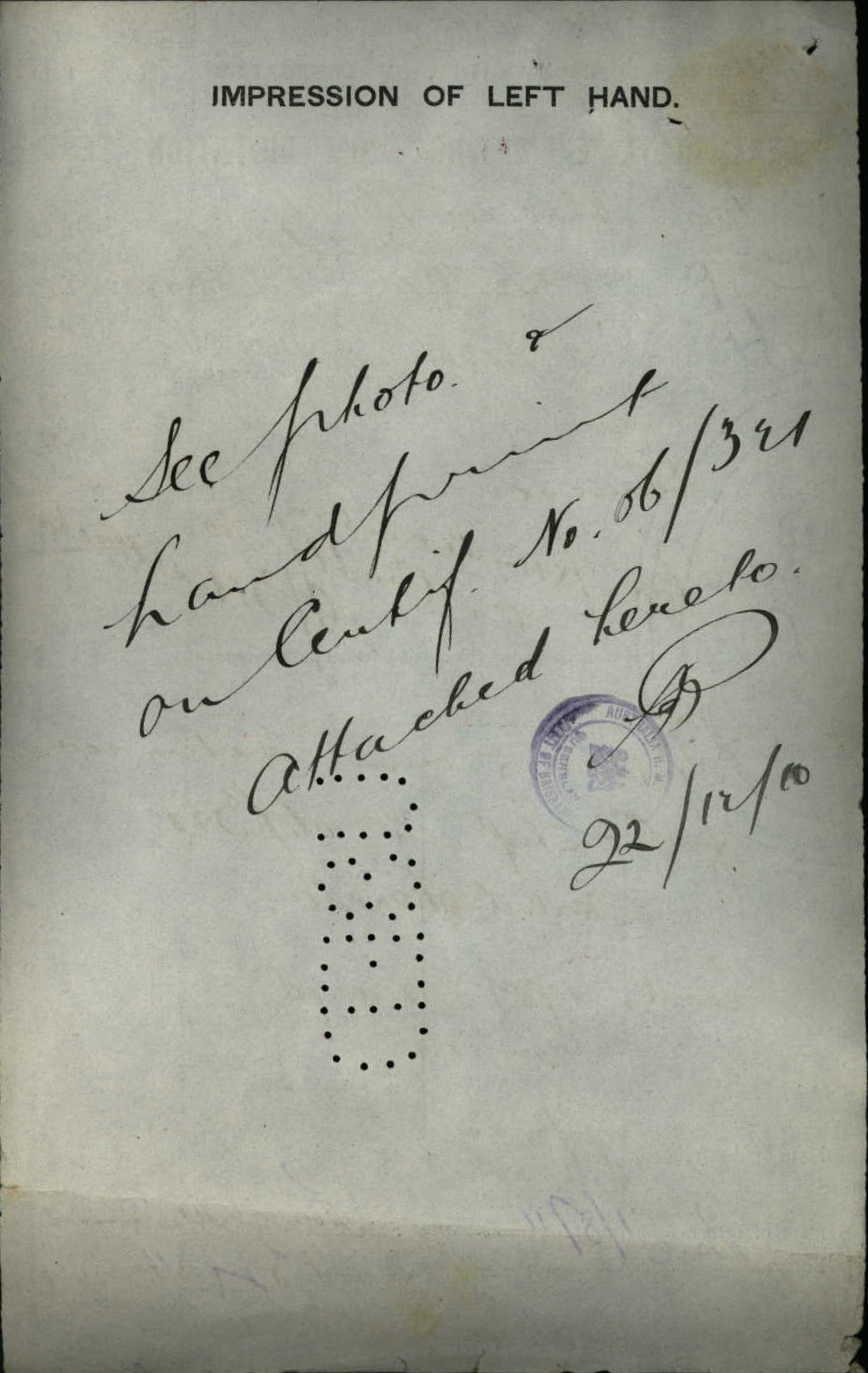 IMPRESSION OF LEFT HAND.
See photo. &
handprint
on Certif. No. 06/321
Attached hereto.
22/12/10